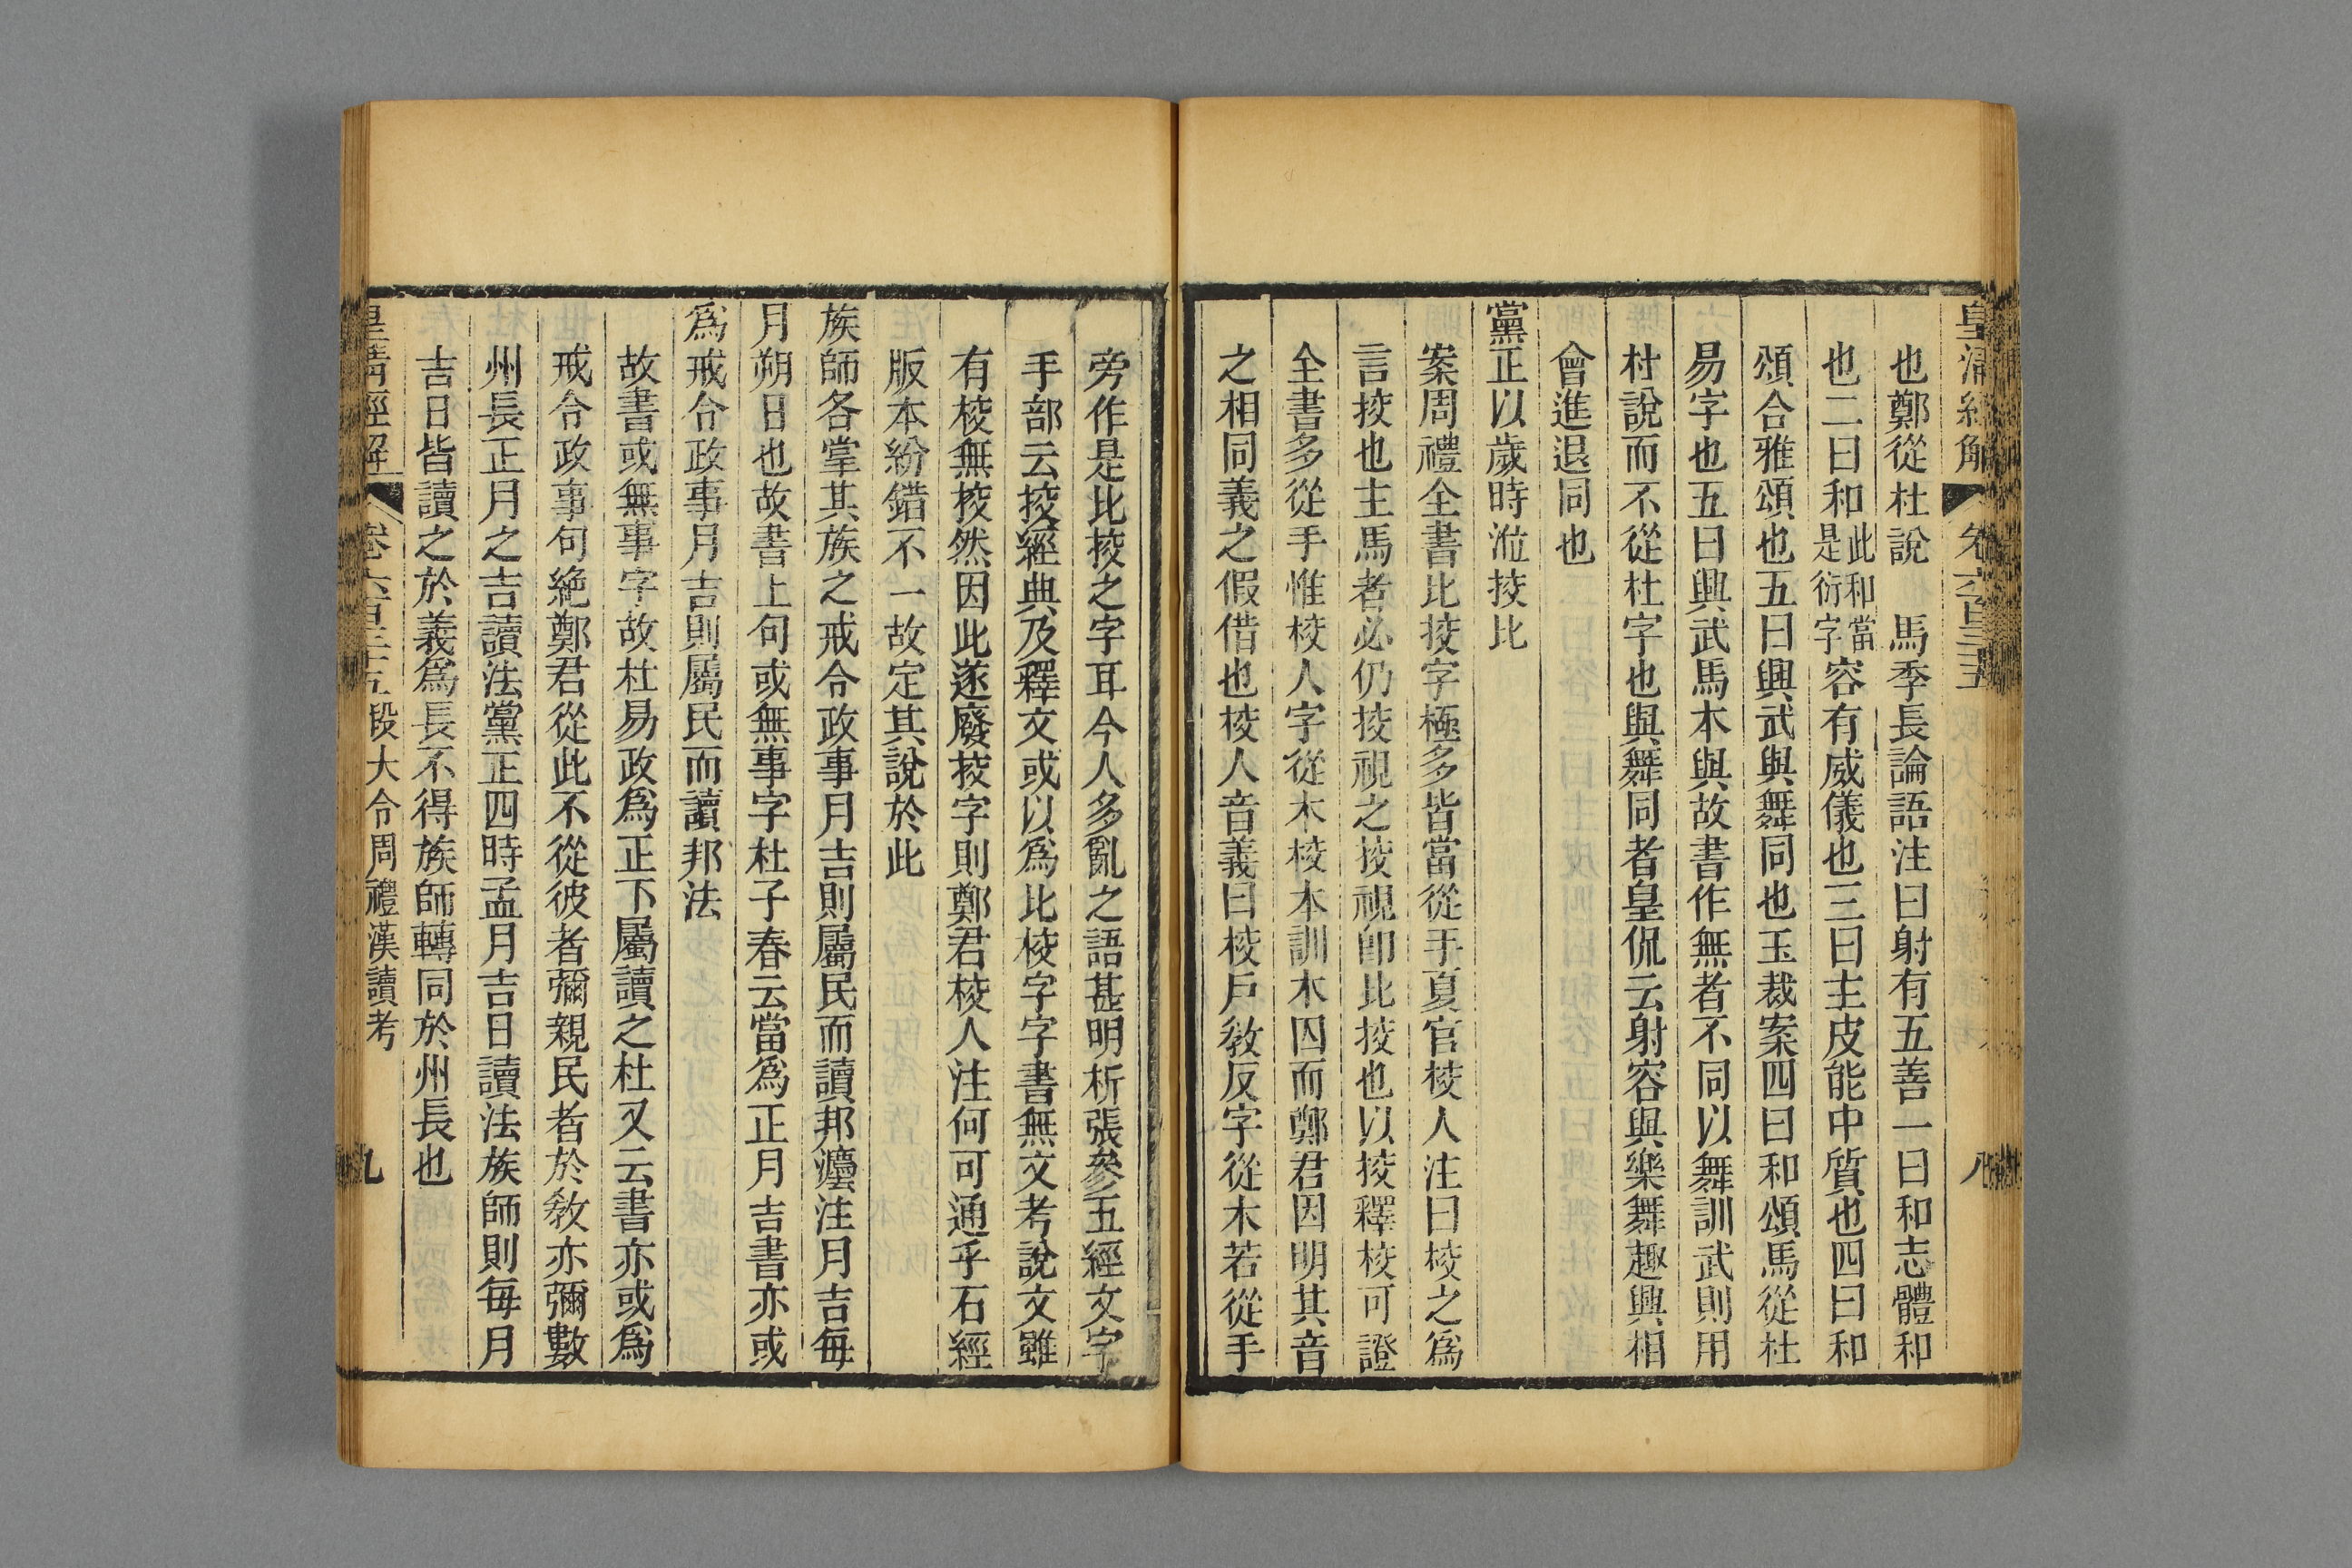 皇清經解 卷六百三十五 八
也鄭從杜說 馬季長論語注曰射有五善一曰和志體和
也二曰和此和當是衍字容有威儀也三曰主皮能中質也四曰和
頌合雅頌也五曰興武與舞同也玉裁案四曰和頌馬從杜
易字也五曰興武馬本與故書作無者不同以舞訓武則用
杜說而不從杜字也與舞同者皇侃云射容與樂舞趣興相
會進退同也
黨正以歲時涖挍比
案周禮全書比挍字極多皆當從手夏官校人注曰校之為
言挍也主馬者必仍挍視之挍視卽比挍也以挍釋校可證
全書多從手惟校人字從木校本訓木囚而鄭君因明其音
之相同義之假借也校人音義曰校戶敎反字從木若從手
旁作是比挍之字耳今人多亂之語甚明析張參五經文字
手部云挍經典及釋文或以為比校字字書無文考說文雖
有校無挍然因此遂廢挍字則鄭君校人注何可通乎石經
版本紛錯不一故定其說於此
族師各掌其族之戒令政事月吉則屬民而讀邦灋注月吉每
月朔日也故書上句或無事字杜子春云當為正月吉書亦或
為戒令政事月吉則屬民而讀邦法
故書或無事字故杜易政為正下屬讀之杜又云書亦或為
戒令政事句絶鄭君從此不從彼者彌親民者於敎亦彌數
州長正月之吉讀法黨正四時孟月吉日讀法族師則每月
吉日皆讀之於義為長不得族師轉同於州長也
皇清經解 卷六百三十五 段大令周禮漢讀考 九